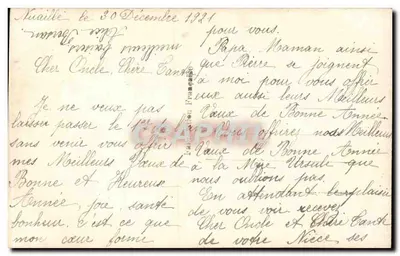 Nuaillé le 30 Décembre 1921
Cher Oncle, Chère Tante
Je ne veux pas
laisser passer le 1er
sans venir vous offrir
mes Meilleurs Vœux de
Bonne et Heureuse
Année, joie, santé
bonheur, c'est ce que
mon cœur forme
pour vous.
Papa Maman ainsi
que Pierre se joignent
à moi pour vous offrir
eux aussi leurs Meilleurs
Vœux de Bonne Année
offrirez nos Meilleurs
Vœux de Bonne Année
à la Mère Ursule que
nous oublions pas.
En attendant le plaisir
de vous voir recevez
Cher Oncle et Chère Tante
de votre Nièce, ses
meilleurs baisers